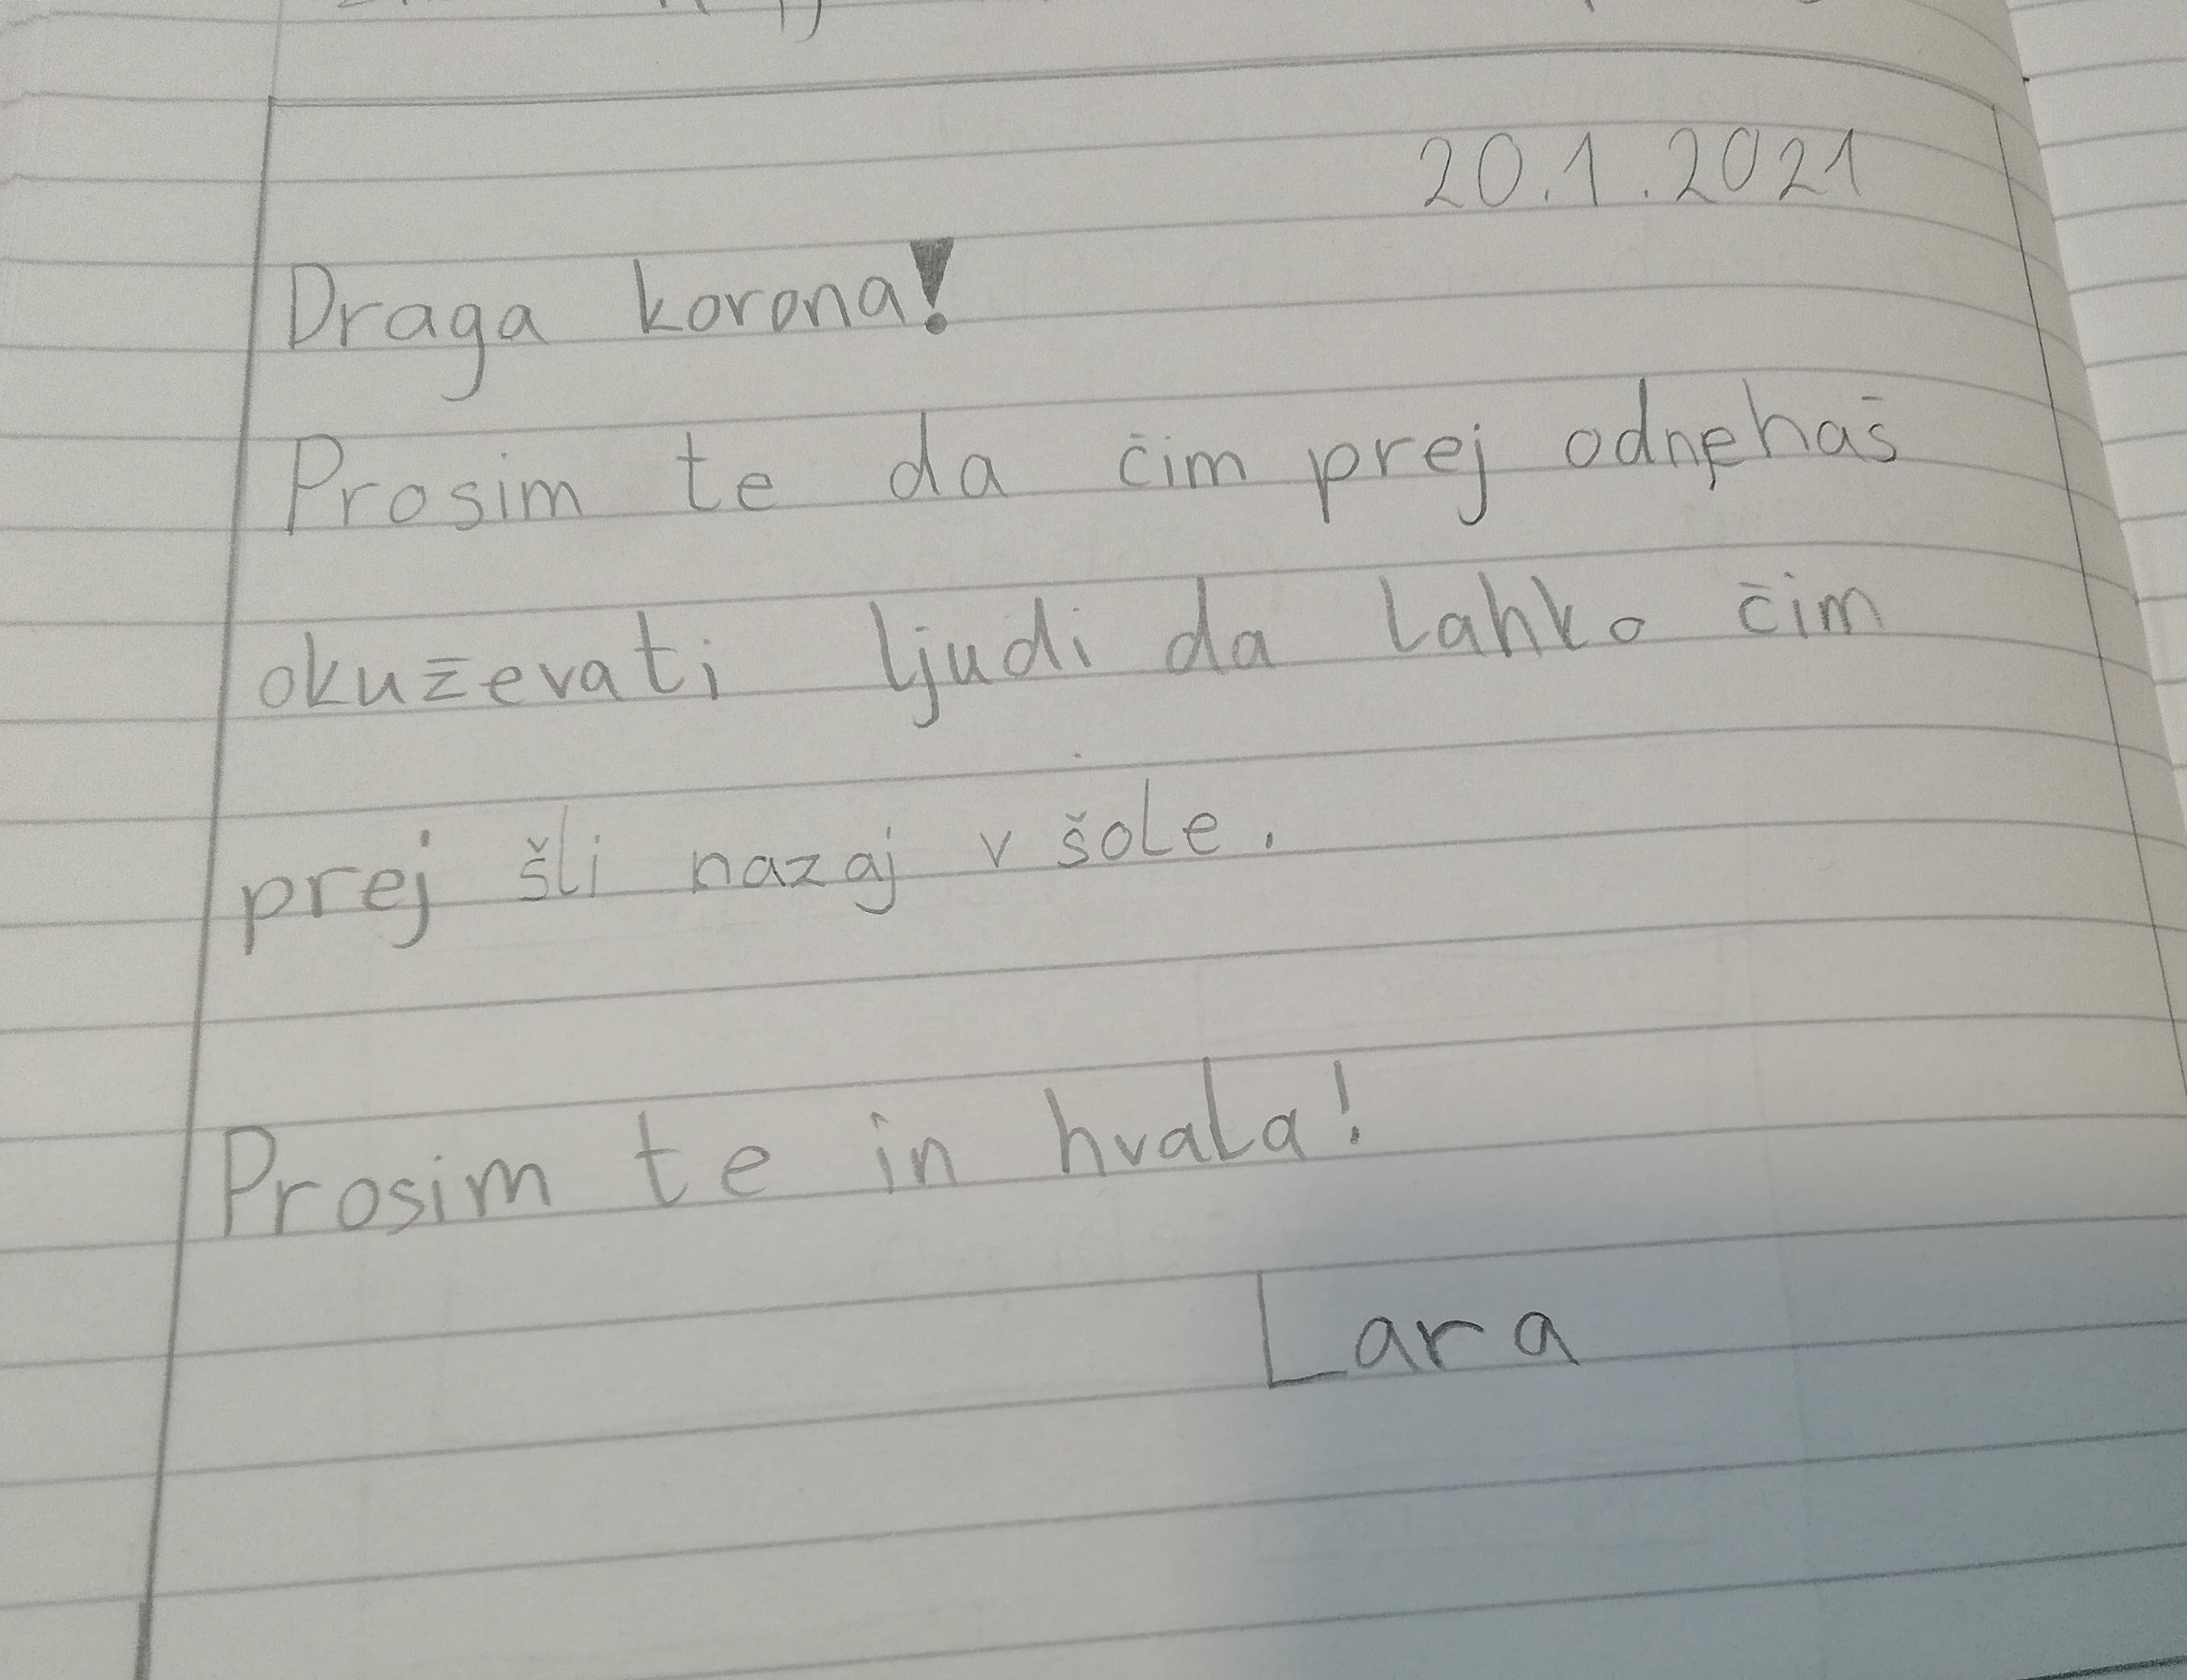 20.1.2021
Draga korona!
Prosim te da čim prej odnehaš
okuževati ljudi da lahko čim
prej šli nazaj v šole.
Prosim te in hvala!
Lara